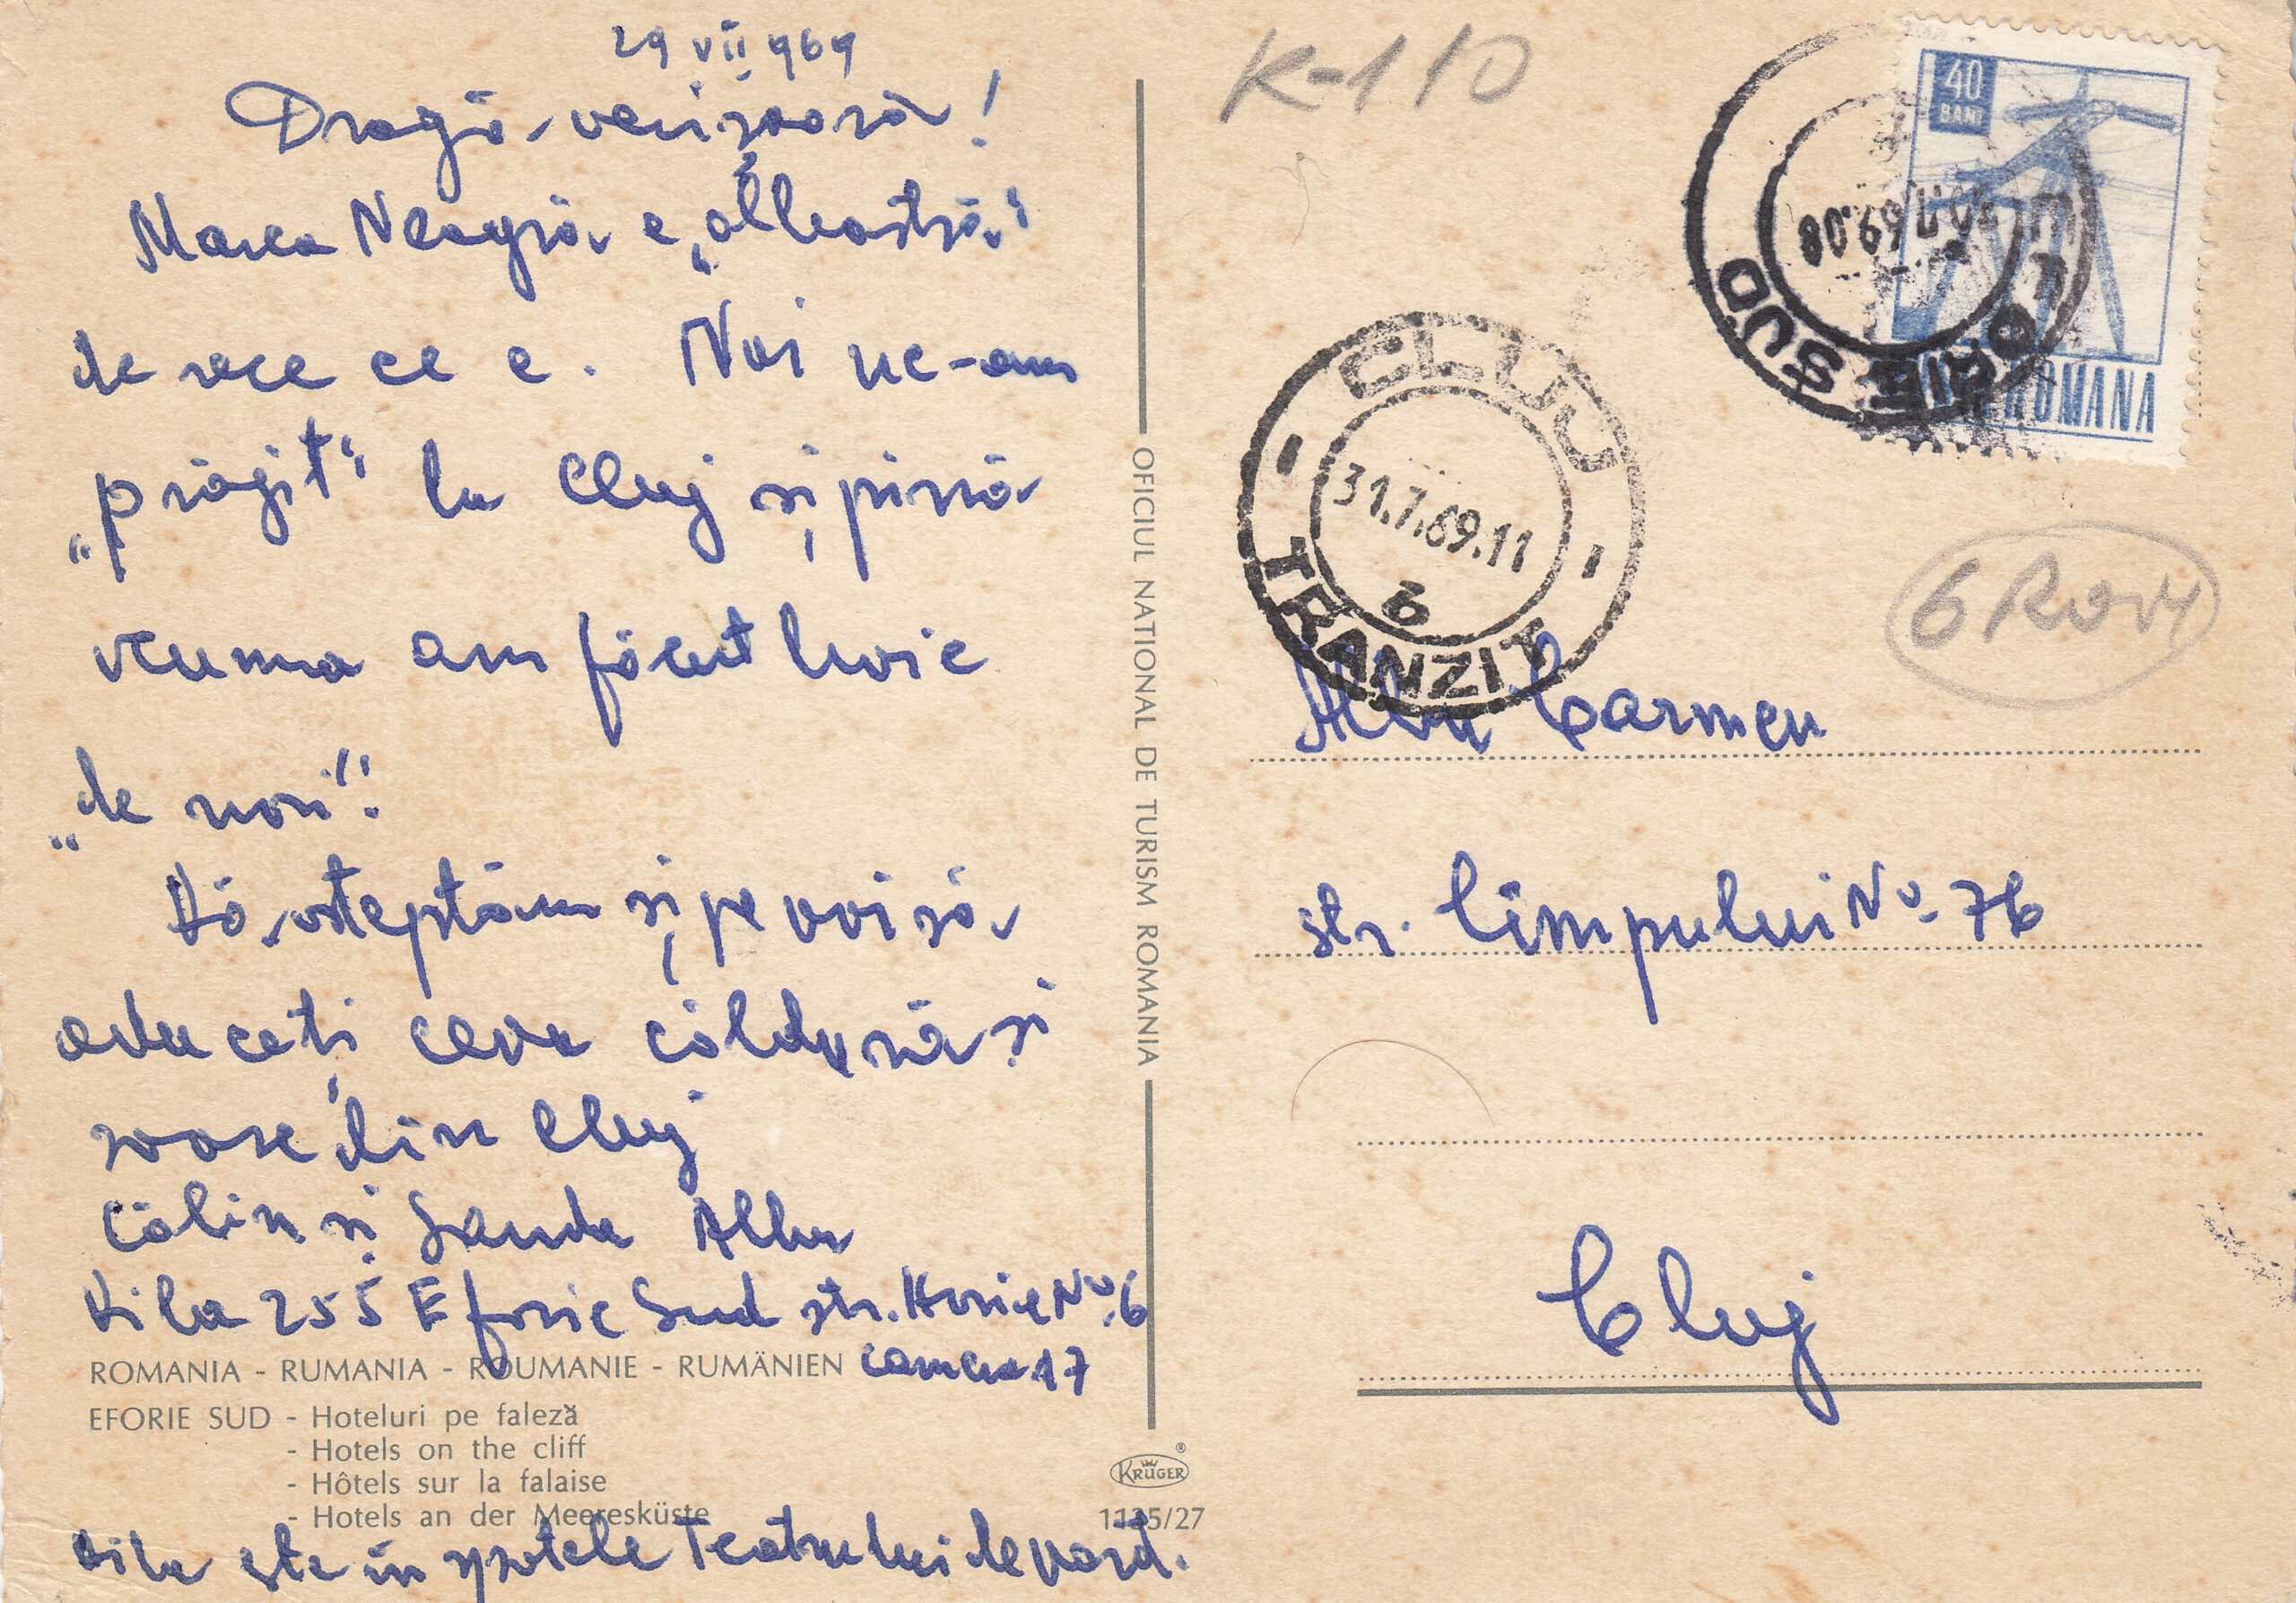 29 VII 969
Dragă verișoară!
Marea Neagră e „albastră"
de rece ce e. Noi ne-am
„prăjit" la Cluj și pînă
acuma am făcut baie
„de nori"!
Vă așteptăm și pe voi să
aduceți ceva căldură și
soare din Cluj
Călin și Sanda Albu
Vila 255 Eforie Sud str. Horia No. 6
camera 17
ROMANIA - RUMANIA - ROUMANIE - RUMÄNIEN
EFORIE SUD - Hoteluri pe faleză
- Hotels on the cliff
- Hôtels sur la falaise
- Hotels an der Meeresküste
vila este în spatele Teatrului de vară.
OFICIUL NATIONAL DE TURISM ROMANIA
KRÜGER ®
1135/27
K-110
40
BANI
ROMANA
69.08
EFORIE SUD
CLUJ
31.7.69.11
6
TRANZIT
6 ROM
Albu Carmen
str. Cîmpului No. 76
Cluj